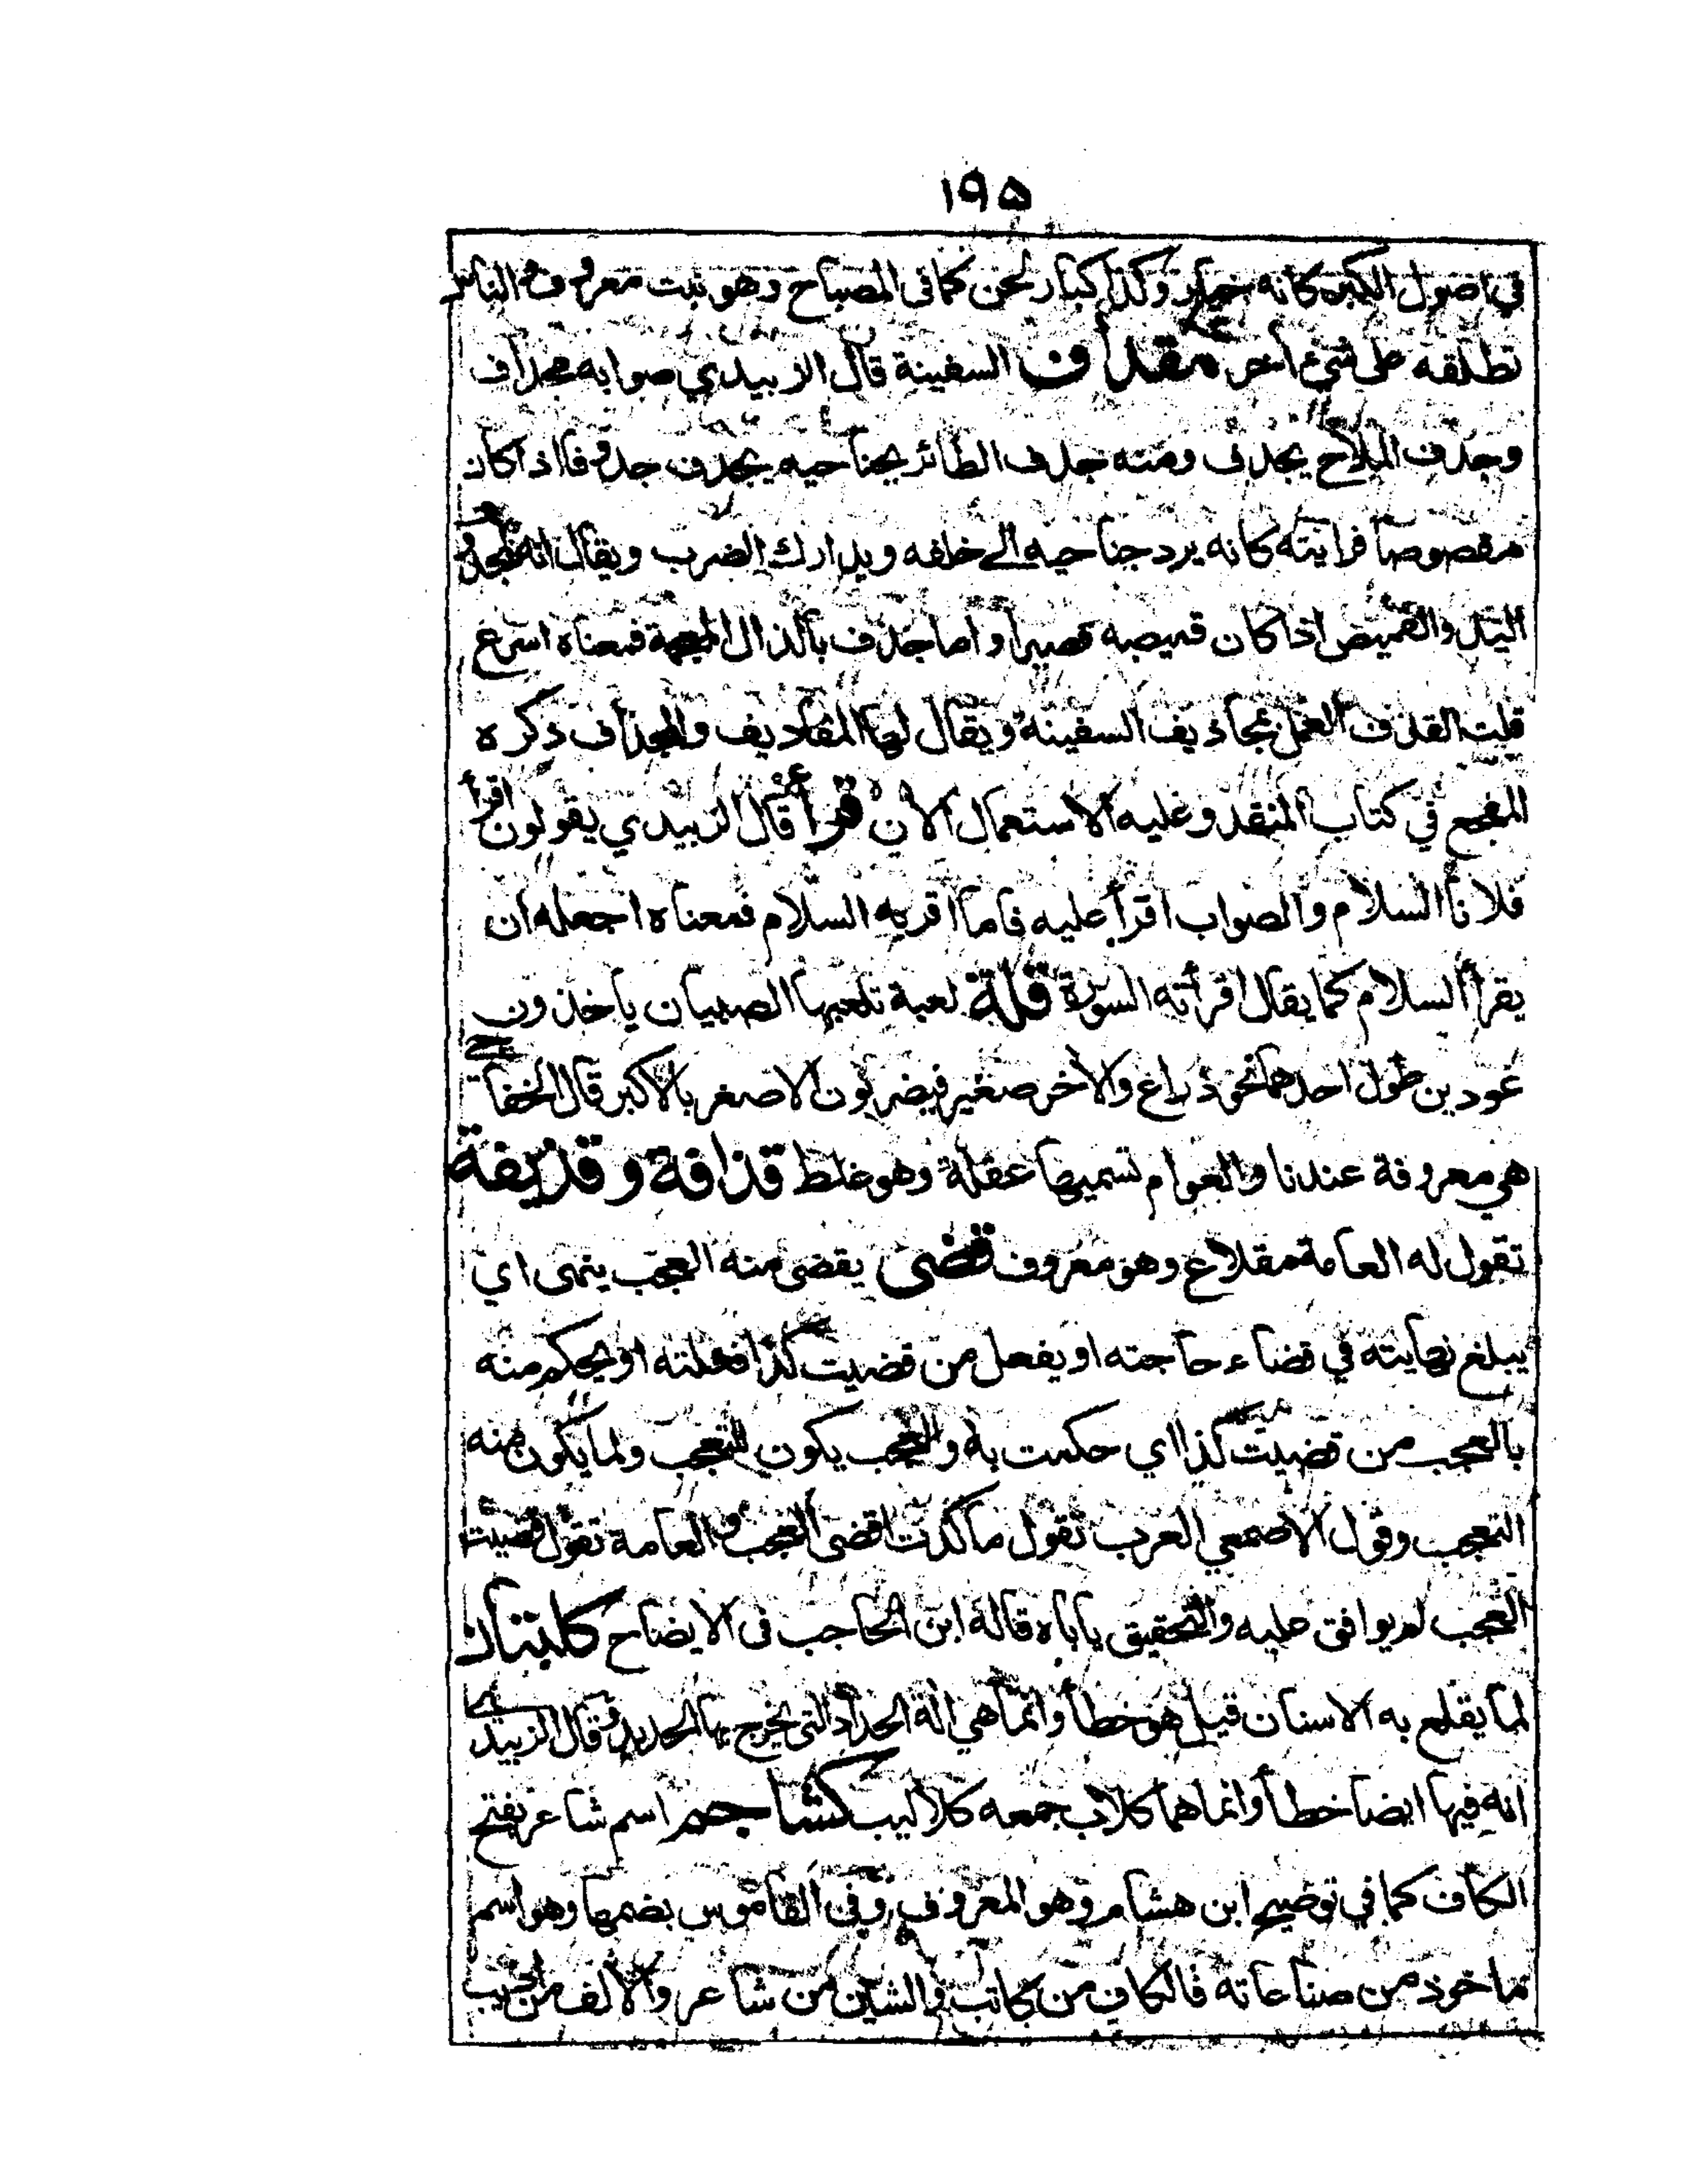 ١٩٥
في اصول الكبر كانه خيار وكذا كبار لحن كما فى المصباح وهو نبت معروف والناس
تطلقه على شيء آخر مقداف السفينة قال الزبيدي صوابه مجداف
وجدف الملاح يجدف ومنه جدف الطائر بجناحيه يجدف جدوفا اذا كان
مقصوصا فرايته كانه يرد جناحيه الى خلفه ويدارك الضرب ويقال انه لمجدوف
اليد والقميص اذا كان قميصه قصيرا واما جذف بالذال المعجمة فمعناه اسرع
قلت القذف العمل بمجاذيف السفينة ويقال لها المقاديف والمجداف ذكره
المفجع في كتاب المنقد وعليه الاستعمال الآن قرأ قال الزبيدي يقولون اقرأ
فلانا السلام والصواب اقرأ عليه فاما اقريه السلام فمعناه اجعله ان
يقرأ السلام كما يقال اقرأته السورة قلة لعبة تلعبها الصبيان ياخذون
عودين طول احدهما نحو ذراع والآخر صغير فيضربون الاصغر بالاكبر قال الخفاجي
هي معروفة عندنا والعوام تسميها عقلة وهو غلط قذافة وقذيفة
تقول له العامة مقلاع وهو معروف قضى يقضى منه العجب ينهى اي
يبلغ نهايته في قضاء حاجته او يفعل من قضيت كذا فعلته او يحكم منه
بالعجب من قضيت كذا اي حكمت به والعجب يكون للتعجب ولما يكون منه
التعجب وقول الاصمعي العرب تقول ما كدت اقضى العجب والعامة تقول قضيت
العجب لم يوافق عليه والتحقيق ياباه قاله ابن الحاجب فى الايضاح كلبتان
لما يقلع به الاسنان قيل هو خطأ وانما هي الة الحداد التى يخرج بها الحديد وقال الزبيدي
انه فيها ايضا خطأ وانما هما كلاب جمعه كلاليب كشاجم اسم شاعر بفتح
الكاف كما في توضيح ابن هشام وهو المعروف وفى القاموس بضمها وهو اسم
ماخوذ من صناعاته فالكاف من كاتب والشين من شاعر والالف من